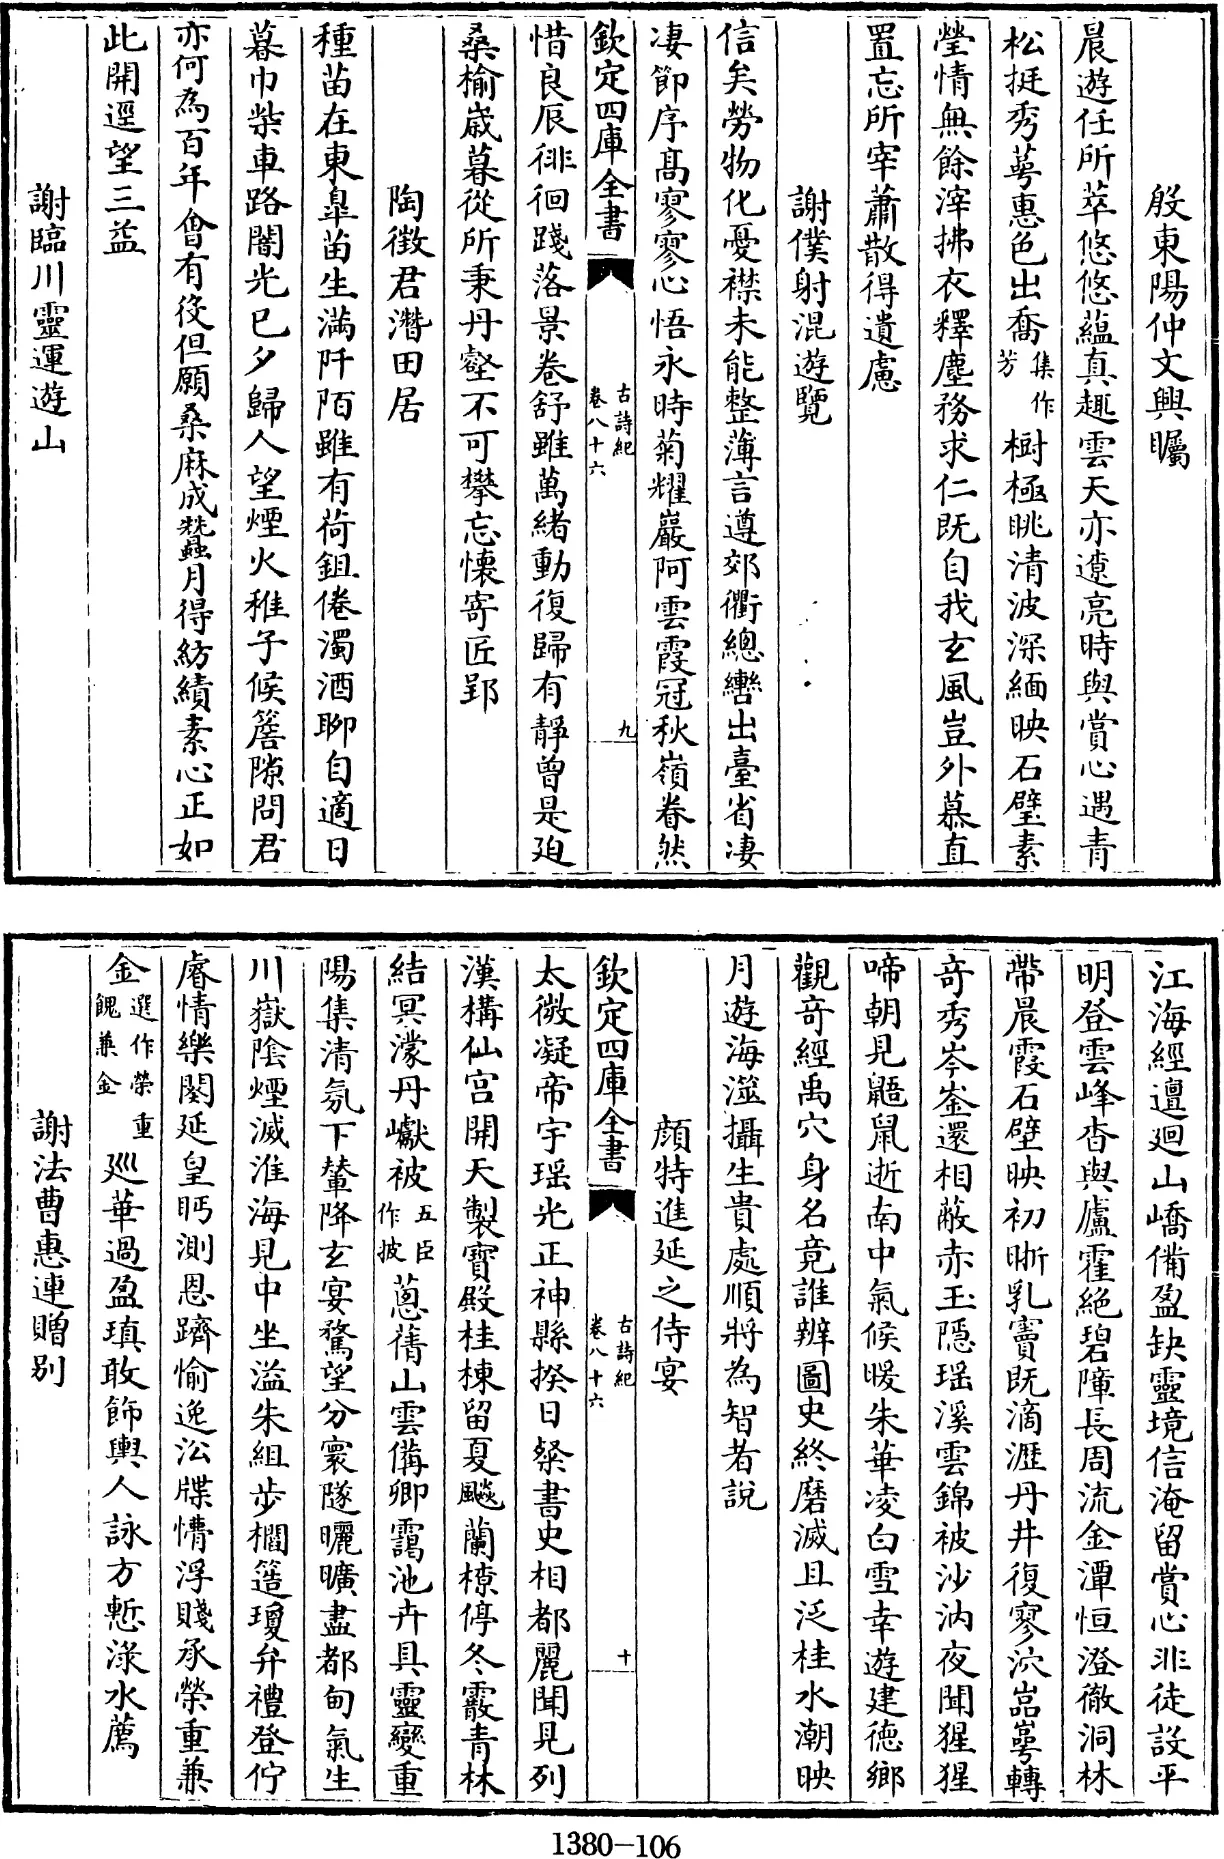 殷東陽仲文興矚
晨遊任所萃悠悠蘊真趣雲天亦遼亮時與賞心遇青
松挺秀萼惠色出喬集作芳樹極眺清波深緬映石壁素
瑩情無餘滓拂衣釋塵務求仁既自我玄風豈外慕直
置忘所宰蕭散得遺慮
謝僕射混遊覽
信矣勞物化憂襟未能整薄言遵郊衢總轡出臺省凄
凄節序高寥寥心悟永時菊耀巖阿雲霞冠秋嶺眷然
欽定四庫全書
古詩紀
卷八十六
九
惜良辰徘徊踐落景卷舒雖萬緒動復歸有靜曾是廹
桑榆歲暮從所秉丹壑不可攀忘懷寄匠郢
陶徵君潛田居
種苗在東臯苗生滿阡陌雖有荷鉏倦濁酒聊自適日
暮巾柴車路闇光已夕歸人望煙火稚子候簷隙問君
亦何為百年會有役但願桑麻成蠶月得紡績素心正如
此開逕望三益
謝臨川靈運遊山
江海經邅廻山嶠備盈缺靈境信淹留賞心非徒設平
明登雲峰杳與廬霍絕碧障長周流金潭恒澄徹洞林
帶晨霞石壁映初晰乳竇既滴瀝丹井復寥泬嵒崿轉
奇秀岑崟還相蔽赤玉隱瑤溪雲錦被沙汭夜聞猩猩
啼朝見鼯鼠逝南中氣候暖朱華凌白雪幸遊建德鄉
觀奇經禹穴身名竟誰辨圖史終磨滅且泛桂水潮映
月遊海澨攝生貴處順將為智者說
顏特進延之侍宴
欽定四庫全書
古詩紀
卷八十六
十
太微凝帝宇瑤光正神縣揆日粲書史相都麗聞見列
漢構仙宮開天製寶殿桂棟留夏飈蘭橑停冬霰青林
結冥濛丹巘被五臣作披蔥蒨山雲備卿靄池卉具靈變重
陽集清氛下輦降玄宴騖望分寰隧曬曠盡都甸氣生
川嶽陰煙滅淮海見中坐溢朱組步櫩簉瓊弁禮登佇
睿情樂闋延皇眄測恩躋愉逸沿牒懵浮賤承榮重兼
金選作榮重餽兼金巡華過盈瑱敢飾輿人詠方慙淥水薦
謝法曹惠連贈別
1380-106